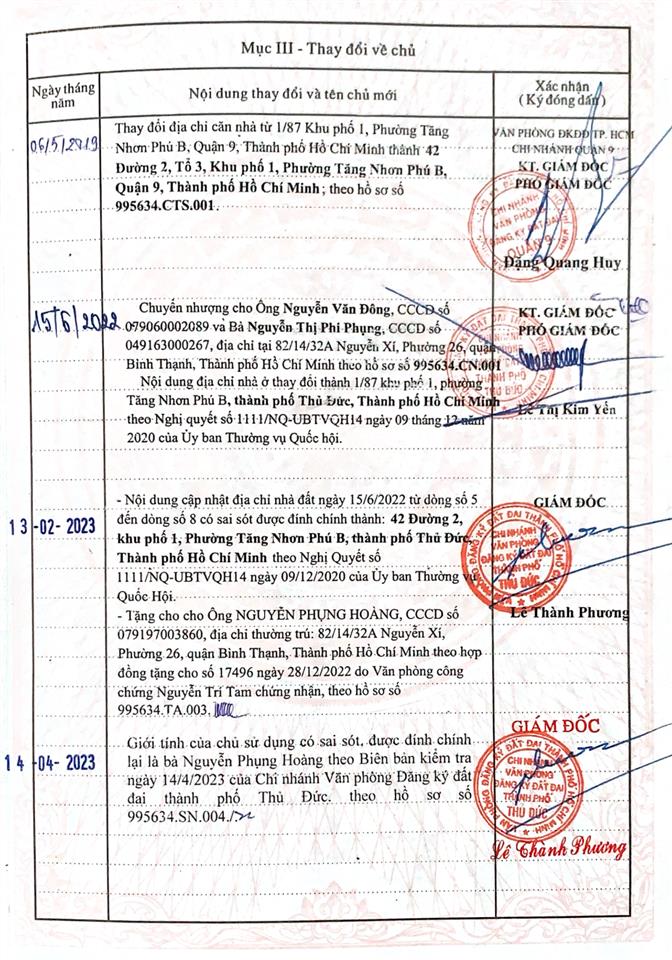 Mục III - Thay đổi về chủ
Ngày tháng năm
Nội dung thay đổi và tên chủ mới
Xác nhận
( Ký đóng dấu )
06/5/2019
Thay đổi địa chỉ căn nhà từ 1/87 Khu phố 1, Phường Tăng
Nhơn Phú B, Quận 9, Thành phố Hồ Chí Minh thành 42
Đường 2, Tổ 3, Khu phố 1, Phường Tăng Nhơn Phú B,
Quận 9, Thành phố Hồ Chí Minh; theo hồ sơ số
995634.CTS.001.
VĂN PHÒNG ĐKĐĐ TP. HCM
CHI NHÁNH QUẬN 9
KT. GIÁM ĐỐC
PHÓ GIÁM ĐỐC
CHI NHÁNH
VĂN PHÒNG
ĐĂNG KÝ ĐẤT ĐAI
QUẬN 9
Đặng Quang Huy
15/6/2022
Chuyển nhượng cho Ông Nguyễn Văn Đông, CCCD số
079060002089 và Bà Nguyễn Thị Phi Phụng, CCCD số
049163000267, địa chỉ tại 82/14/32A Nguyễn Xí, Phường 26, quận
Bình Thạnh, Thành phố Hồ Chí Minh theo hồ sơ số 995634.CN.001
Nội dung địa chỉ nhà ở thay đổi thành 1/87 khu phố 1, phường
Tăng Nhơn Phú B, thành phố Thủ Đức, Thành phố Hồ Chí Minh
theo Nghị quyết số 1111/NQ-UBTVQH14 ngày 09 tháng 12 năm
2020 của Ủy ban Thường vụ Quốc hội.
KT. GIÁM ĐỐC
PHÓ GIÁM ĐỐC
THÀNH PHỐ
THỦ ĐỨC
Lê Thị Kim Yến
13-02-2023
- Nội dung cập nhật địa chỉ nhà đất ngày 15/6/2022 từ dòng số 5
đến dòng số 8 có sai sót được đính chính thành: 42 Đường 2,
khu phố 1, Phường Tăng Nhơn Phú B, thành phố Thủ Đức,
Thành phố Hồ Chí Minh theo Nghị Quyết số
1111/NQ-UBTVQH14 ngày 09/12/2020 của Ủy ban Thường vụ
Quốc Hội.
- Tặng cho cho Ông NGUYỄN PHỤNG HOÀNG, CCCD số
079197003860, địa chỉ thường trú: 82/14/32A Nguyễn Xí,
Phường 26, quận Bình Thạnh, Thành phố Hồ Chí Minh theo hợp
đồng tặng cho số 17496 ngày 28/12/2022 do Văn phòng công
chứng Nguyễn Trí Tam chứng nhận, theo hồ sơ số
995634.TA.003.
GIÁM ĐỐC
CHI NHÁNH
VĂN PHÒNG
ĐĂNG KÝ ĐẤT ĐAI
THÀNH PHỐ
THỦ ĐỨC
Lê Thành Phương
14-04-2023
Giới tính của chủ sử dụng có sai sót, được đính chính
lại là bà Nguyễn Phụng Hoàng theo Biên bản kiểm tra
ngày 14/4/2023 của Chi nhánh Văn phòng Đăng ký đất
đai thành phố Thủ Đức. theo hồ sơ số
995634.SN.004./
GIÁM ĐỐC
CHI NHÁNH
VĂN PHÒNG
ĐĂNG KÝ ĐẤT ĐAI
THÀNH PHỐ
THỦ ĐỨC
Lê Thành Phương